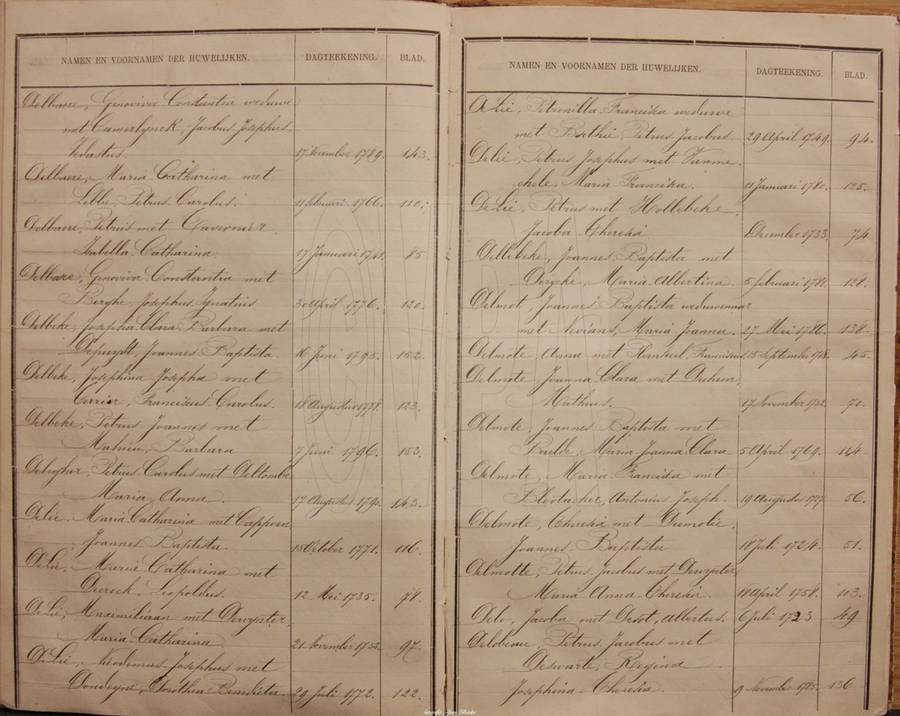 NAMEN EN VOORNAMEN DER HUWELIJKEN. DAGTEEKENING. BLAD.
Delbaere, Genoviva Constantia weduwe
met Camerlynck, Jacobus Josephus
Sebastus. 17 November 1789. 143.
Delbaere, Maria Catharina met
Lellie, Petrus Carolus. 11 februari 1766. 110.
Delbaere, Petrus met
Isabella Catharina 17 Januari 1741. 85
Delbare, Genoviva Constantia met
Berghe, Josephus Ignatius 30 April 1776. 120.
Delbeke, Josepha Clara Barbara met
Depuydt, Joannes Baptista 16 Juni 1795. 152.
Delbeke, Josephina Josepha met
Carrier, Franciskus Carolus. 18 Augustus 1778. 123.
Delbeke, Petrus Joannes met
Mahieu, Barbara 7 Juni 1796. 153.
Petrus Carolus met Deltombe
Maria Anna. 17 Augustus 143.
Delie, Maria Catharina met Cappoen
Joannes Baptista. 15 October 1771. 116.
De Lie, Maria Catharina met
Dierock, Leopoldus. 12 Mei 1735. 78.
De Lie, Maximiliaan met Dewynter,
Maria Catharina 21 November 97.
De Lie, Nicodemus Josephus met
Dondeyne, Dorothea Benedicta 29 Juli 1772. 122.
NAMEN EN VOORNAMEN DER HUWELIJKEN. DAGTEEKENING. BLAD.
De Lie, Petronilla Franciska weduwe
met Berthie Petrus Jacobus. 29 April 1749. 94.
Delie, Petrus Josephus met Vanme-
chele, Maria Franciska. 11 Januari 1780. 125.
De Lie, Petrus met Hollebeke
Jacoba Theresia December 1733. 74.
Dellebeke, Joannes Baptista met
Derycke, Maria Albertina 5 februari 1781. 128.
Delmot, Joannes Baptista weduwenaar
met Maria Joanna. 27 Mei 1786. 138.
Delmote Anna met Franciscus 15 September 1718. 45.
Delmote, Joanna Clara met
Mathias. 17 November 1732. 70.
Delmote, Joannes Baptista met
Baelde, Maria Joanna Clara 5 April 1769. 114.
Delmote, Maria Franciska met
Antonius Joseph. 19 Augustus 1727. 56.
Delmote, Theresia met Dumolie,
Joannes Baptista 18 Juli 1724. 51.
Delmotte, Petrus Jacobus met Dewynter
Maria Anna Theresia 18 April 1758. 103.
Delo, Jacoba met Desot, Albertus. 6 Juli 1723. 49
Delobeau, Petrus Jacobus met
Deswarte, Regina
Josephina Theresia. 9 November 1785. 136